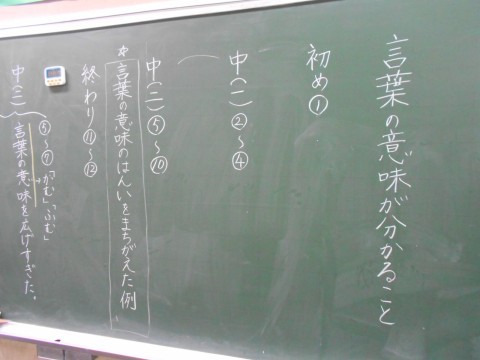 言葉の意味が分かること
初め①
中(一)②～④
中(二)⑤～⑩
☆言葉の意味のはんいをまちがえた例
終わり⑪～⑫
中(二)
⑤～⑦「かむ」「ふむ」
言葉の意味を広げすぎた。